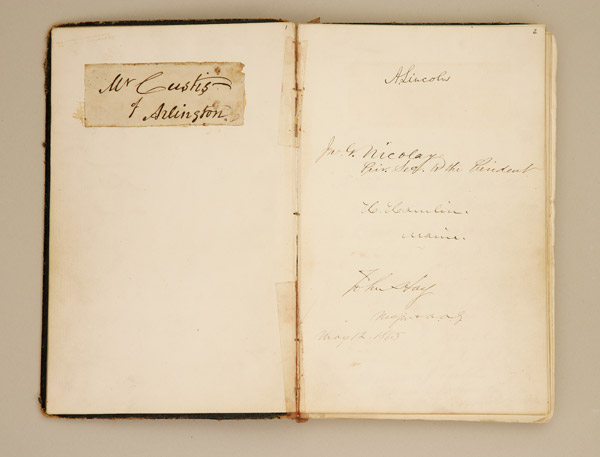 1
Mr Custis
of Arlington
2
A Lincoln
Jn. G. Nicolay
Priv. Sec. to the President
H. Hamlin.
Maine.
John Hay
Maj. & a. a. g
May 12